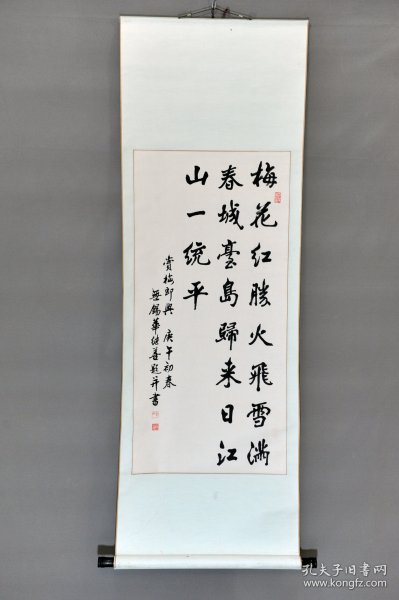 梅花红勝火飛雪满
春城臺島歸来日江
山一统平
賞梅即興 庚午初春
無錫華继善題并書
孔夫子旧书网
www.kongfz.com